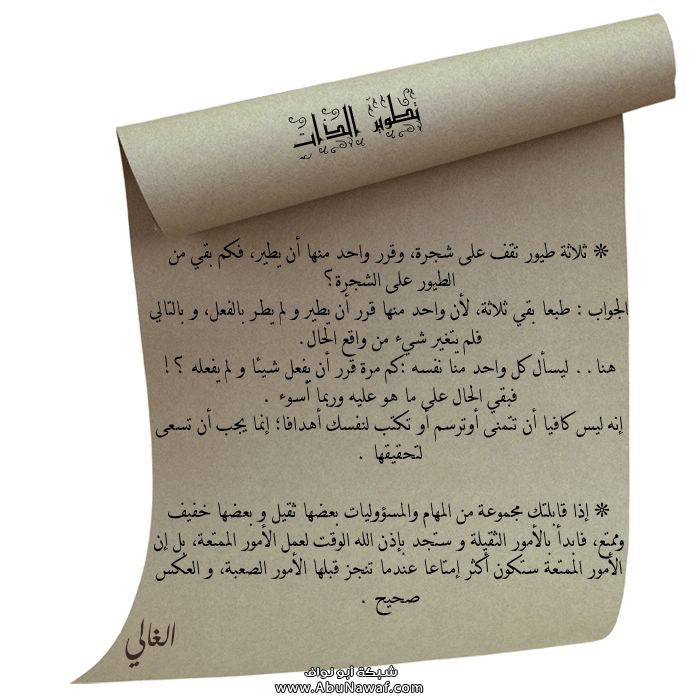 تطوير الذات
* ثلاثة طيور تقف على شجرة، وقرر واحد منها أن يطير، فكم بقي من
الطيور على الشجرة؟
الجواب : طبعا بقي ثلاثة، لأن واحد منها قرر أن يطير و لم يطر بالفعل، و بالتالي
فلم يتغير شيء من واقع الحال.
هنا . . ليسأل كل واحد منا نفسه :كم مرة قرر أن يفعل شيئا و لم يفعله ؟ !
فبقي الحال على ما هو عليه وربما أسوء .
إنه ليس كافيا أن تتمنى أوترسم أو تكتب لنفسك أهدافا؛ إنما يجب أن تسعى
لتحقيقها .
* إذا قابلتك مجموعة من المهام والمسؤوليات بعضها ثقيل و بعضها خفيف
وممتع، فابدأ بالأمور الثقيلة و ستجد بإذن الله الوقت لعمل الأمور الممتعة، بل إن
الأمور الممتعة ستكون أكثر إمتاعا عندما تنجز قبلها الأمور الصعبة، و العكس
صحيح .
الغالي
شبكة أبو نواف
www.AbuNawaf.com